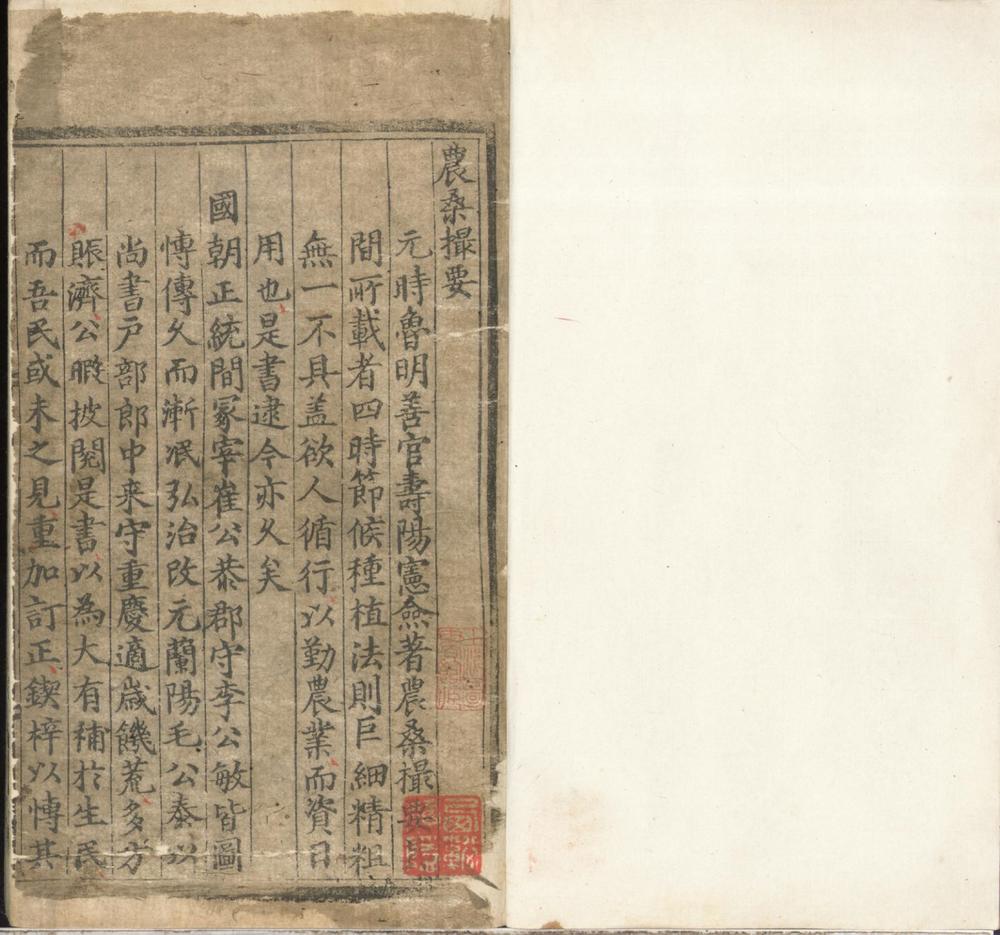 農桑撮要
元時魯明善官壽陽憲僉著農桑撮要
間所載者四時節候種植法則巨細精粗
無一不具盖欲人循行以勤農業而資日
用也是書逮今亦久矣
國朝正統間冢宰崔公恭郡守李公敏皆圖
愽傳久而漸泯弘治改元蘭陽毛公泰以
尚書户部郎中来守重慶適歳饑荒多方
賑濟公暇披閱是書以為大有補於生民
而吾民或未之見重加訂正鍥梓以愽其